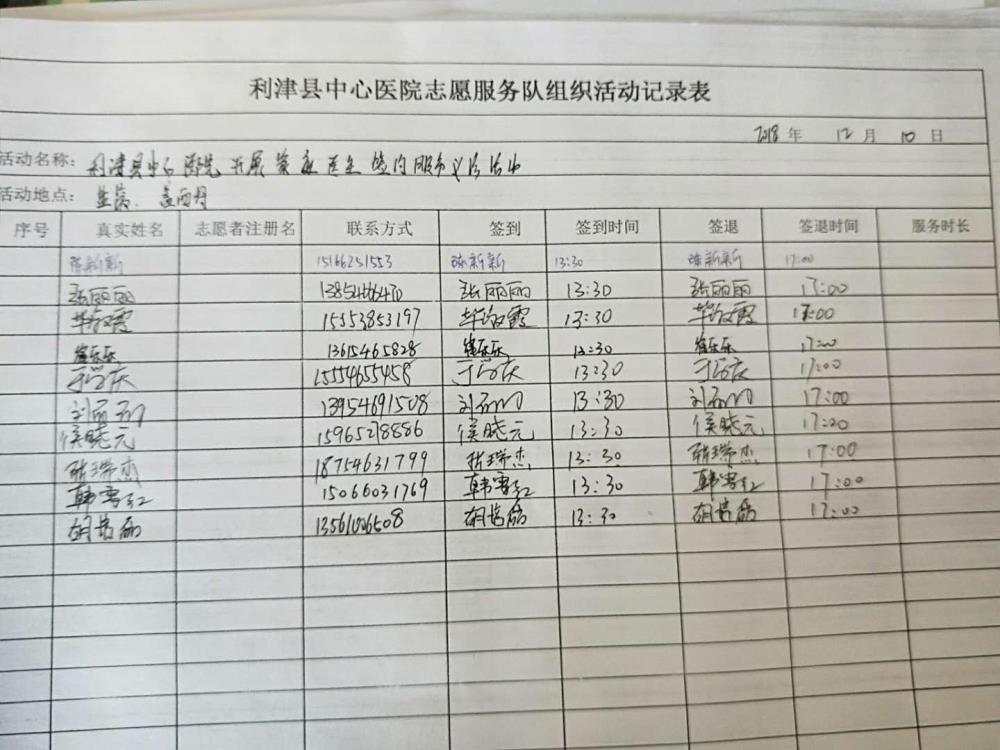 利津县中心医院志愿服务队组织活动记录表
2018 年 12 月 10 日
活动名称： 利津县中心医院开展家庭医生签约服务义诊活动
活动地点： 盐窝、
序号 真实姓名 志愿者注册名 联系方式 签到 签到时间 签退 签退时间 服务时长
陈新新 15166251553 陈新新 13:30 陈新新 17:00
张丽丽 张丽丽 13:30 张丽丽 17:00
15353853197 13:30 17:00
崔乐乐 13615465828 崔乐乐 13:30 崔乐乐 17:00
于学庆 15554655458 于学庆 13:30 于学庆 17:00
刘丽丽 13954691508 刘丽丽 13:30 刘丽丽 17:00
侯晓元 15965278886 侯晓元 13:30 侯晓元 17:00
18754631799 13:30 17:00
韩雪红 15066031769 韩雪红 13:30 韩雪红 17:00
胡培磊 胡培磊 13:30 胡培磊 17:00